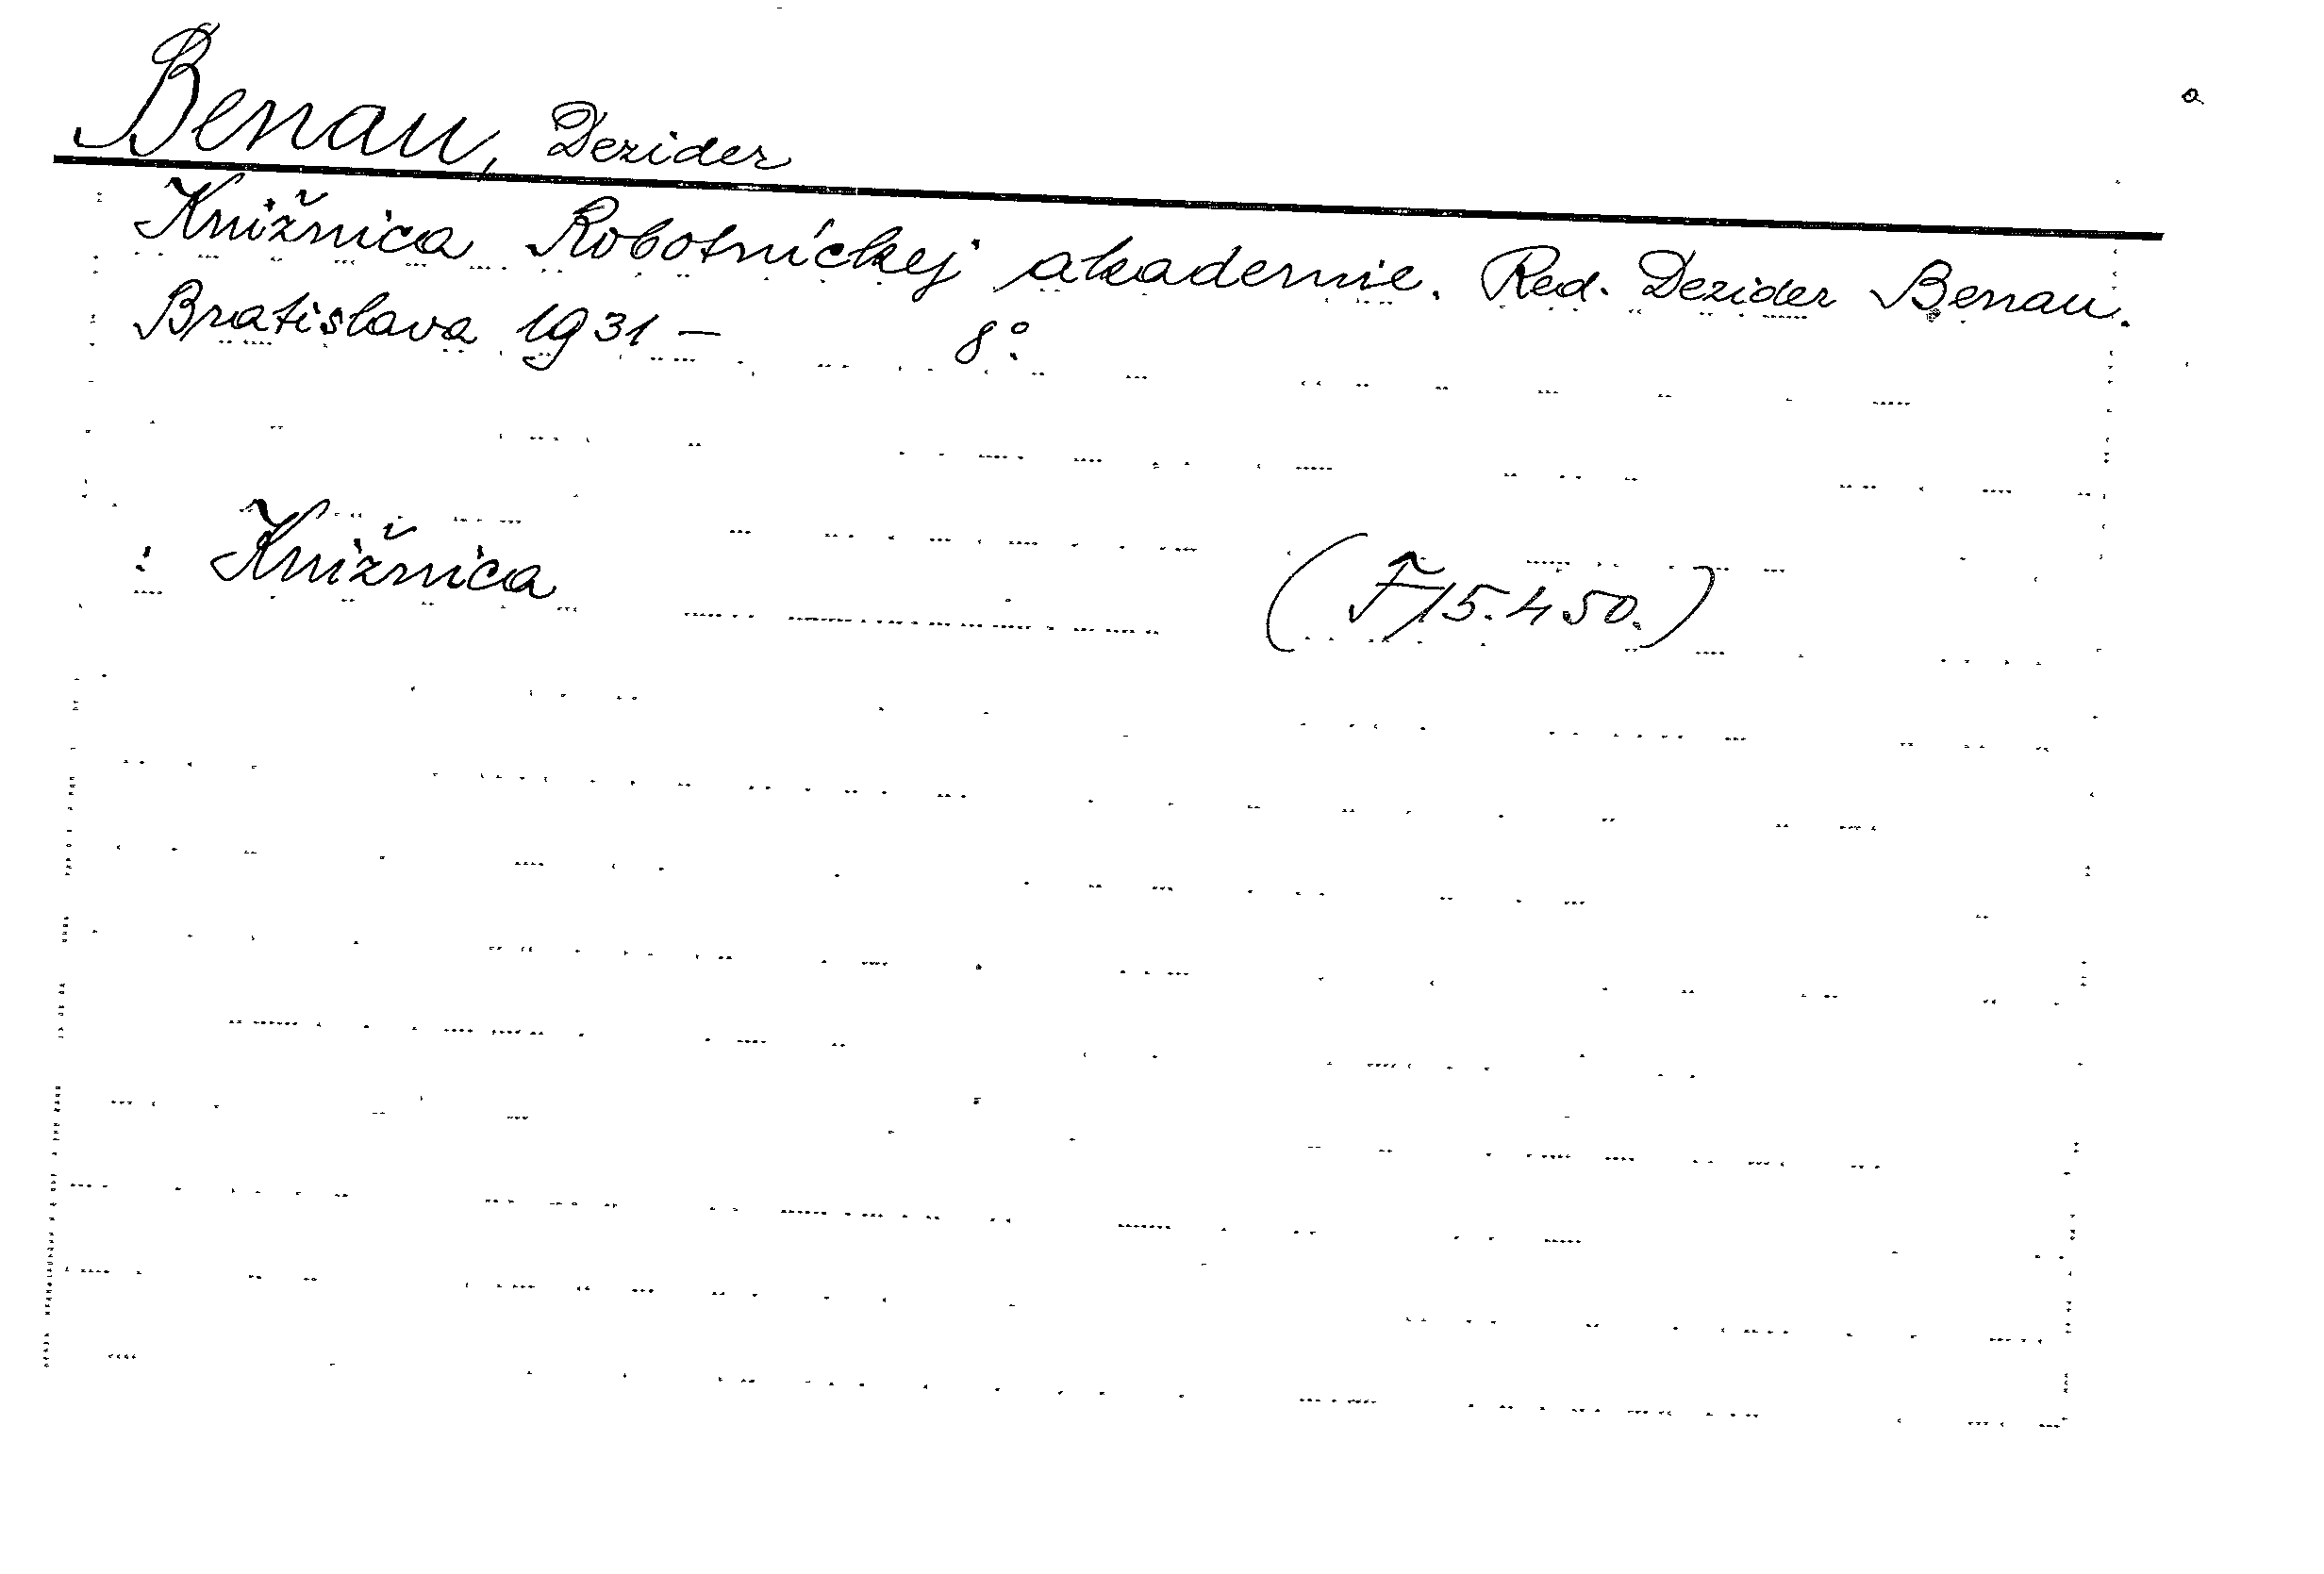 Benau, Dezider
Knižnica Robotníckej akademie. Red. Dezider Benau.
Bratislava 1931 – 8°.
: Knižnica (F 15.450.)